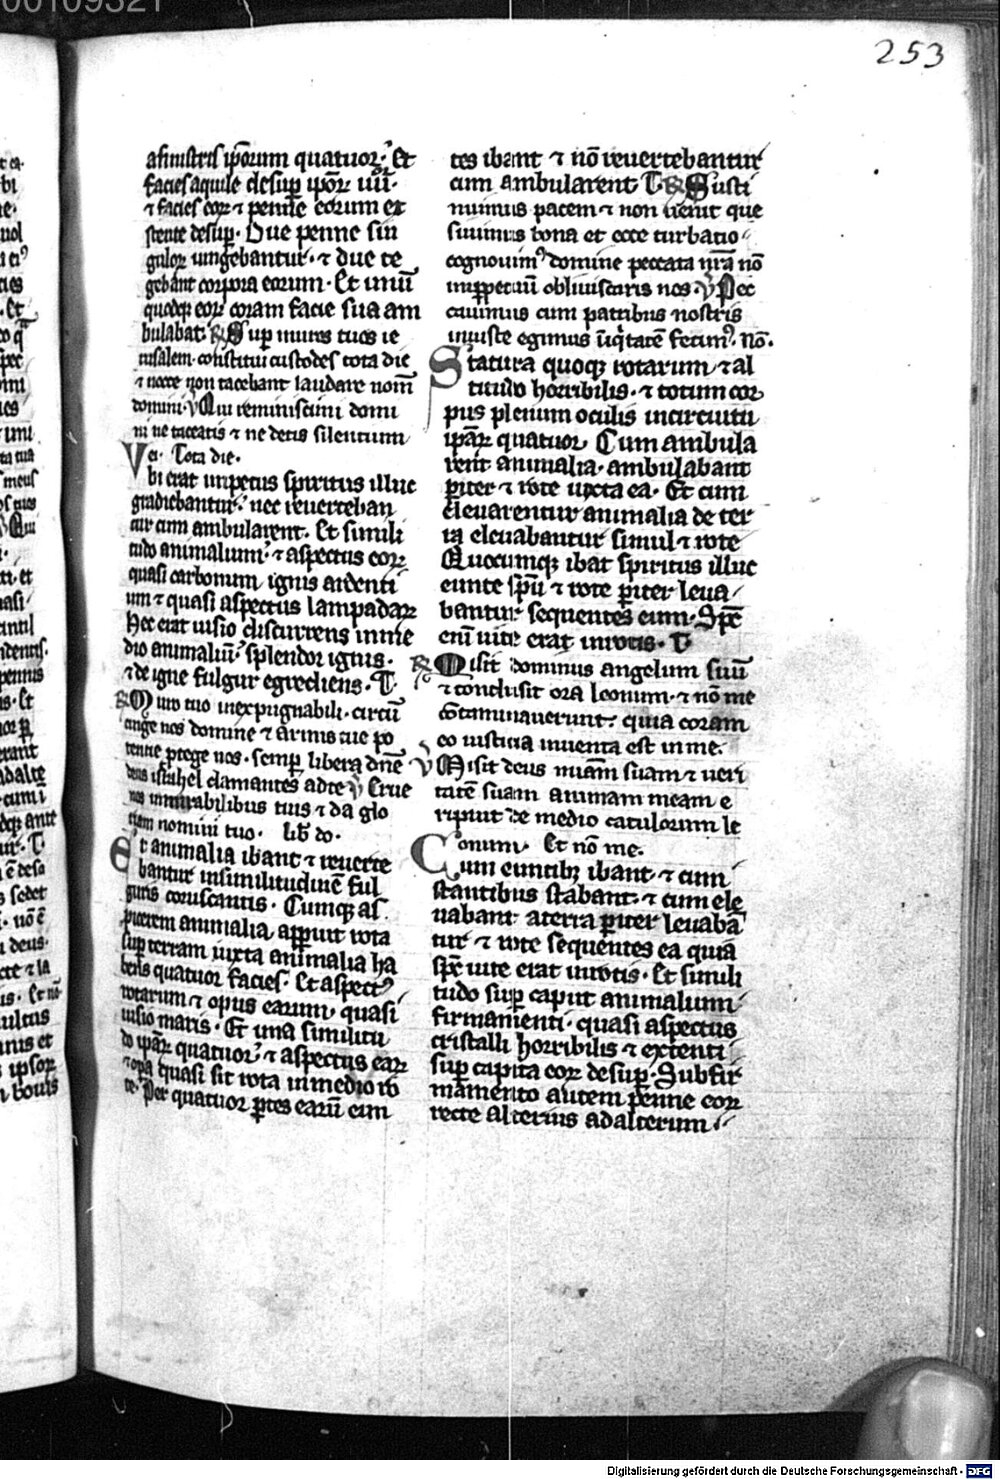 253
a sinistris ip̄orum quatuor. Et
facies aquile desup̱ ip̄oꝝ iiii.
⁊ facies eoꝝ ⁊ penne eorum ex
tente desup̱. Due penne sin
guloꝝ iungebantur. ⁊ due te
gebant corpora eorum. Et unū
quodqꝫ eoꝝ coram facie sua am
bulabat. ℟ Sup̱ muros tuos ie
rusalem constitui custodes tota die
⁊ nocte non tacebunt laudare nom̄
domini. ℣ Qui reminiscimi domi
ni ne taceatis ⁊ ne detis silentium
ei. Tota die.
Vbi erat impetus spiritus illuc
gradiebantur. nec reuerteban
tur cum ambularent. Et simili
tudo animalium. ⁊ aspectus eoꝝ
quasi carbonum ignis ardenti
um ⁊ quasi aspectus lampadaꝝ
Hec erat uisio discurrens in me
dio animaliū. splendor ignis.
⁊ de igne fulgur egrediens. T.
℟ Muro tuo inexpugnabili. circū
cinge nos domine ⁊ armis tue po
tentie p̱tege nos. semp̱ libera dn̄e
deus israhel clamantes ad te ℣ Erue
nos in mirabilibus tuis ⁊ da glo
riam nomini tuo. lib̄ do.
Et animalia ibant ⁊ reuerte
bantur in similitudinē ful
guris coruscantis. Cumqꝫ as
picerem animalia apparuit rota
sup̱ terram iuxta animalia ha
bens quatuor facies. Et aspectꝰ
rotarum ⁊ opus earum. quasi
uisio maris. Et una similitu
do ip̄aꝝ quatuor ⁊ aspectus eaꝝ
⁊ opa quasi sit rota in medio ro
te. Per quatuor p̱tes earū eun
tes ibant ⁊ nō reuertebantur
cum ambularent T. ℟ Susti
nuimus pacem ⁊ non uenit que
siuimus bona et ecce turbatio
cognouimꝰ domine peccata nr̄a nō
inp̱petuū obliuiscaris nos. ℣ Pec
cauimus cum patribus nostris
iniuste egimus iniq̄tatē fecimꝰ. Nō.
Statura quoqꝫ rotarum ⁊ al
titudo horribilis. ⁊ totum cor
pus plenum oculis incircuitu
ip̄aꝝ quatuor. Cum ambula
rent animalia. ambulabant
p̱iter ⁊ rote iuxta ea. Et cum
eleuarentur animalia de ter
ra eleuabantur simul ⁊ rote
Quocumqꝫ ibat spiritus illuc
eunte sp̄u ⁊ rote p̱iter leua
bantur sequentes eum. Sp̄c
eni uite erat in rotis. T
℟ Misit dominus angelum suū
⁊ conclusit ora leonum. ⁊ non me
cōtaminauerunt. quia coram
eo iusticia inuenta est in me.
℣ Misit deus miam̄ suam ⁊ ueri
tatē suam animam meam e
ripuit de medio catulorum le
onum. Et nō me.
Cum euntibꝫ ibant. ⁊ cum
stantibus stabant. ⁊ cum ele
uabant aterra p̱iter leuabā
tur ⁊ rote sequentes ea quia
sp̄c uite erat in rotis. Et simili
tudo sup̱ caput animalium
firmamenti. quasi aspectus
cristalli horribilis ⁊ extenti
sup̱ capita eoꝝ desup̱. Sub fir
mamento autem penne eoꝝ
recte alterius ad alterum.
Digitalisierung gefördert durch die Deutsche Forschungsgemeinschaft - DFG